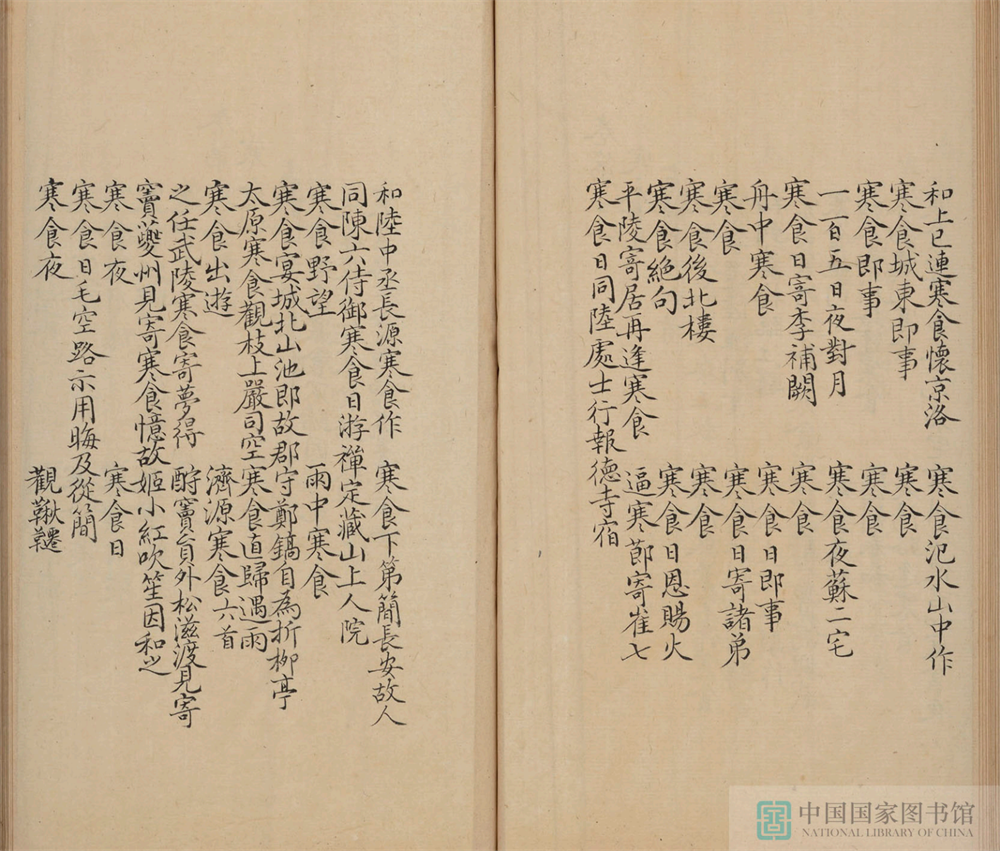 和上巳連寒食懷京洛　寒食氾水山中作
寒食城東即事　寒食
寒食即事　寒食
一百五日夜對月　寒食夜蘇二宅
寒食日寄李補闕　寒食
舟中寒食　寒食日即事
寒食　寒食日寄諸弟
寒食後北樓　寒食
寒食絕句　寒食日恩賜火
平陵寄居再逢寒食　逼寒節寄崔七
寒食日同陸處士行報德寺宿
和陸中丞長源寒食作　寒食下第簡長安故人
同陳六侍御寒食日游禪定藏山上人院
寒食野望　雨中寒食
寒食宴城北山池即故郡守鄭鎬自為折柳亭
太原寒食觀枝上嚴司空　寒食直歸遇雨
寒食出遊　濟源寒食六首
之任武陵寒食寄夢得　酧竇員外松滋渡見寄
竇夔州見寄寒食憶故姬小紅吹笙因和之
寒食夜　寒食日
寒食日毛空路示用晦及從簡
寒食夜　觀鞦韆
中国国家图书馆
NATIONAL LIBRARY OF CHINA